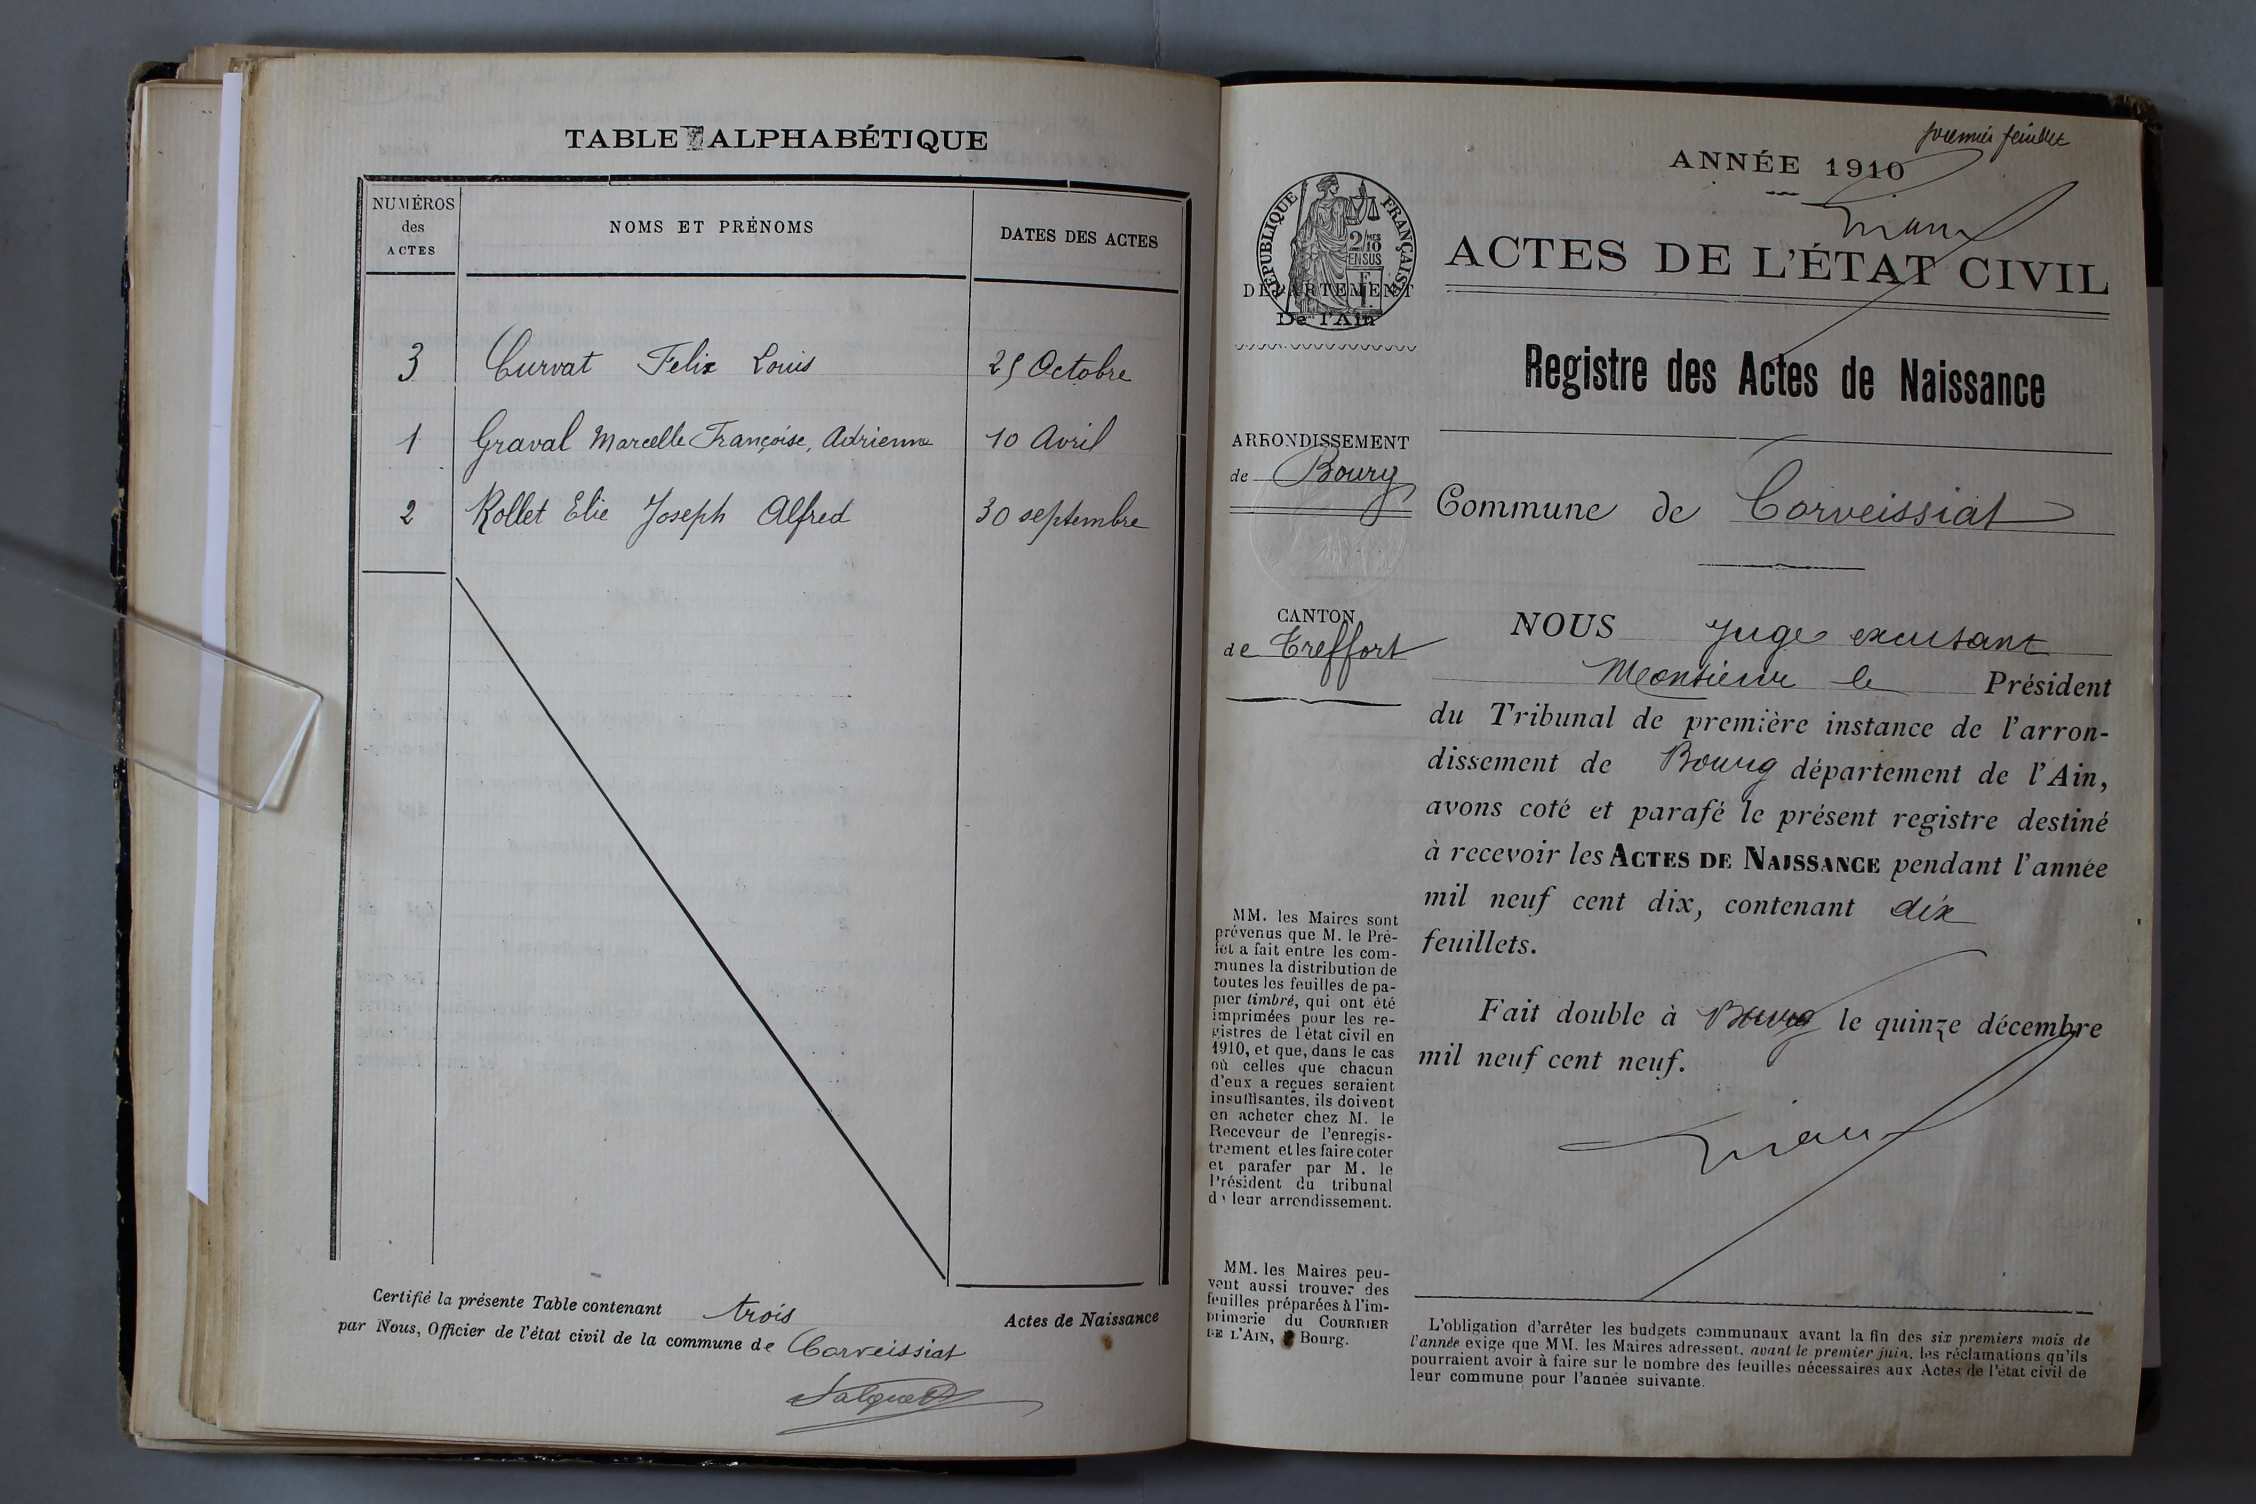 TABLE ALPHABÉTIQUE
NUMÉROS des ACTES
NOMS ET PRÉNOMS
DATES DES ACTES
3 Curvat Felix Louis 25 Octobre
1 Graval Marcelle Françoise, Adrienne 10 Avril
2 Rollet Elie Joseph Alfred 30 septembre
Certifié la présente Table contenant trois Actes de Naissance
par Nous, Officier de l'état civil de la commune de Corveissiat
premier feuillet
ANNÉE 1910
RÉPUBLIQUE FRANÇAISE
2/10 MES
EN SUS
DÉPARTEMENT
De l'Ain
ACTES DE L'ÉTAT CIVIL
Registre des Actes de Naissance
ARRONDISSEMENT
de Bourg
Commune de Corveissiat
CANTON
de Treffort
NOUS Juge excusant
Monsieur le Président
du Tribunal de première instance de l'arron-
dissement de Bourg département de l'Ain,
avons coté et parafé le présent registre destiné
à recevoir les ACTES DE NAISSANCE pendant l'année
mil neuf cent dix, contenant dix
feuillets.
Fait double à Bourg le quinze décembre
mil neuf cent neuf.
MM. les Maires sont
prévenus que M. le Pré-
fet a fait entre les com-
munes la distribution de
toutes les feuilles de pa-
pier timbré, qui ont été
imprimées pour les re-
gistres de l'état civil en
1910, et que, dans le cas
où celles que chacun
d'eux a reçues seraient
insuffisantes, ils doivent
en acheter chez M. le
Receveur de l'enregis-
trement et les faire coter
et parafer par M. le
Président du tribunal
de leur arrondissement.
MM. les Maires peu-
vent aussi trouver des
feuilles préparées à l'im-
primerie du COURRIER
DE L'AIN, à Bourg.
L'obligation d'arrêter les budgets communaux avant la fin des six premiers mois de
l'année exige que MM. les Maires adressent, avant le premier juin, les réclamations qu'ils
pourraient avoir à faire sur le nombre des feuilles nécessaires aux Actes de l'état civil de
leur commune pour l'année suivante.